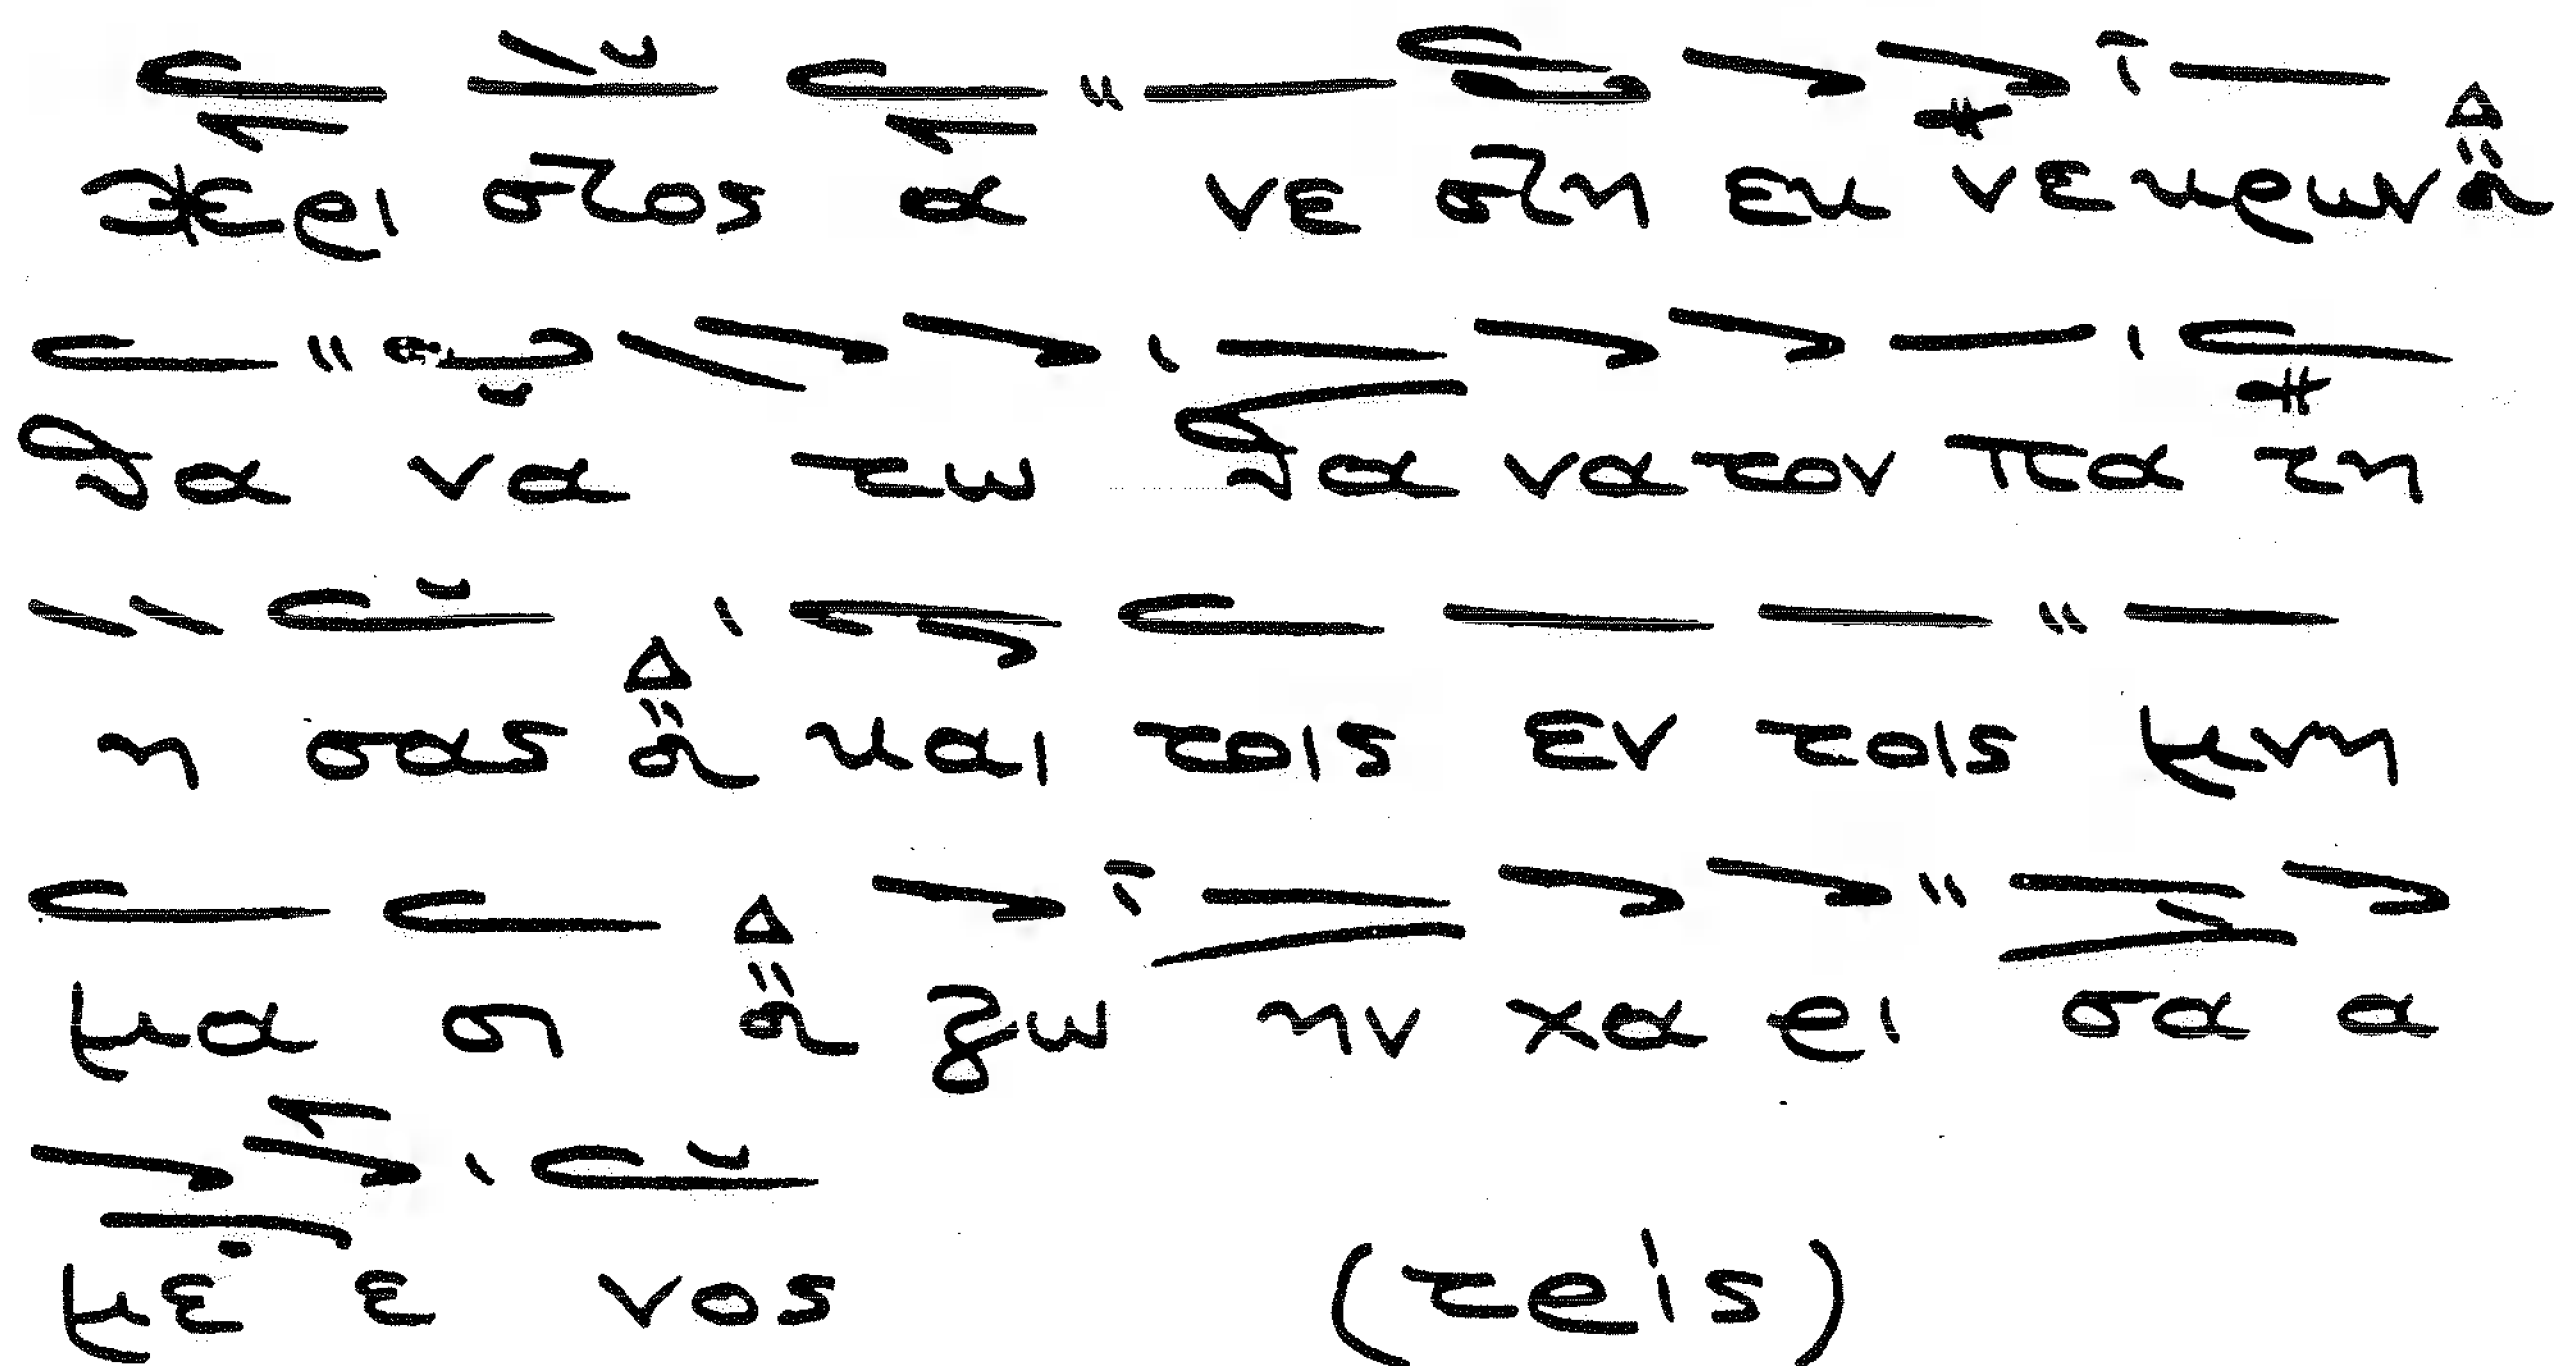 Χρι στος α νε στη εκ νεκρων Δ
θα να τω θα νατον πα τη
η σας Δ και τοις εν τοις μνη
μα σι Δ ζω ην χα ρι σα α
με ε νος (τρίς)